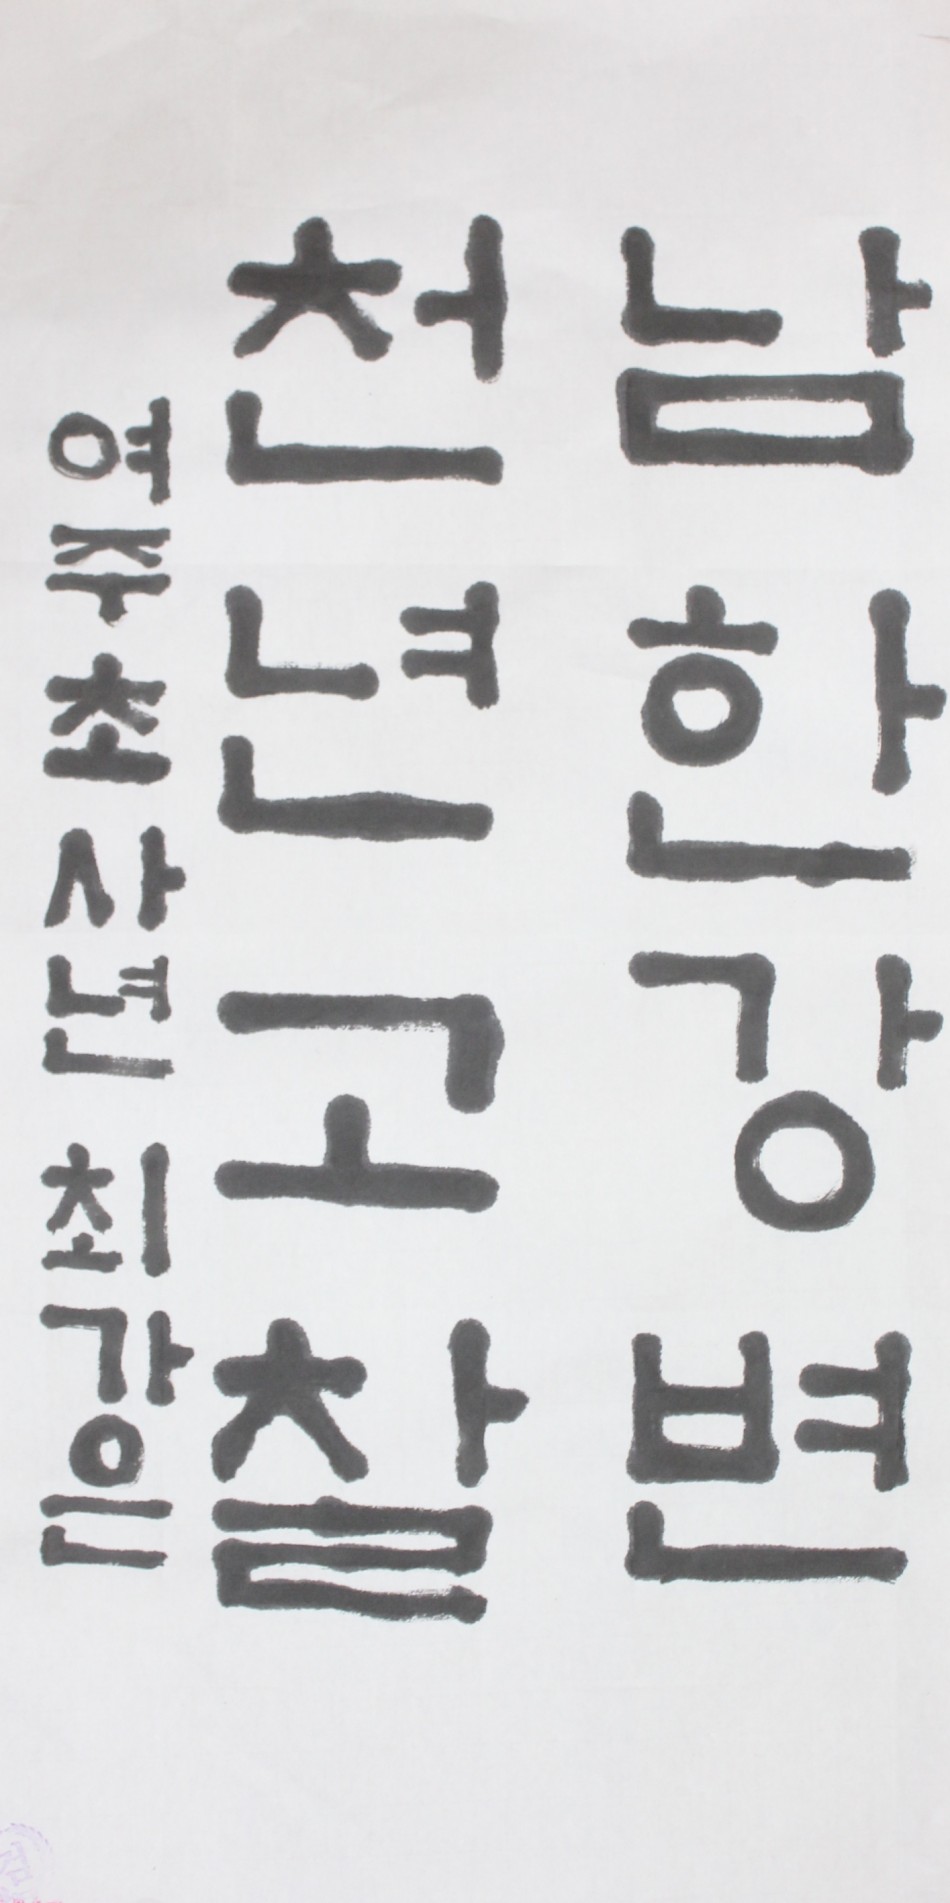 남한강변
천년고찰
여주초 사년 최가은